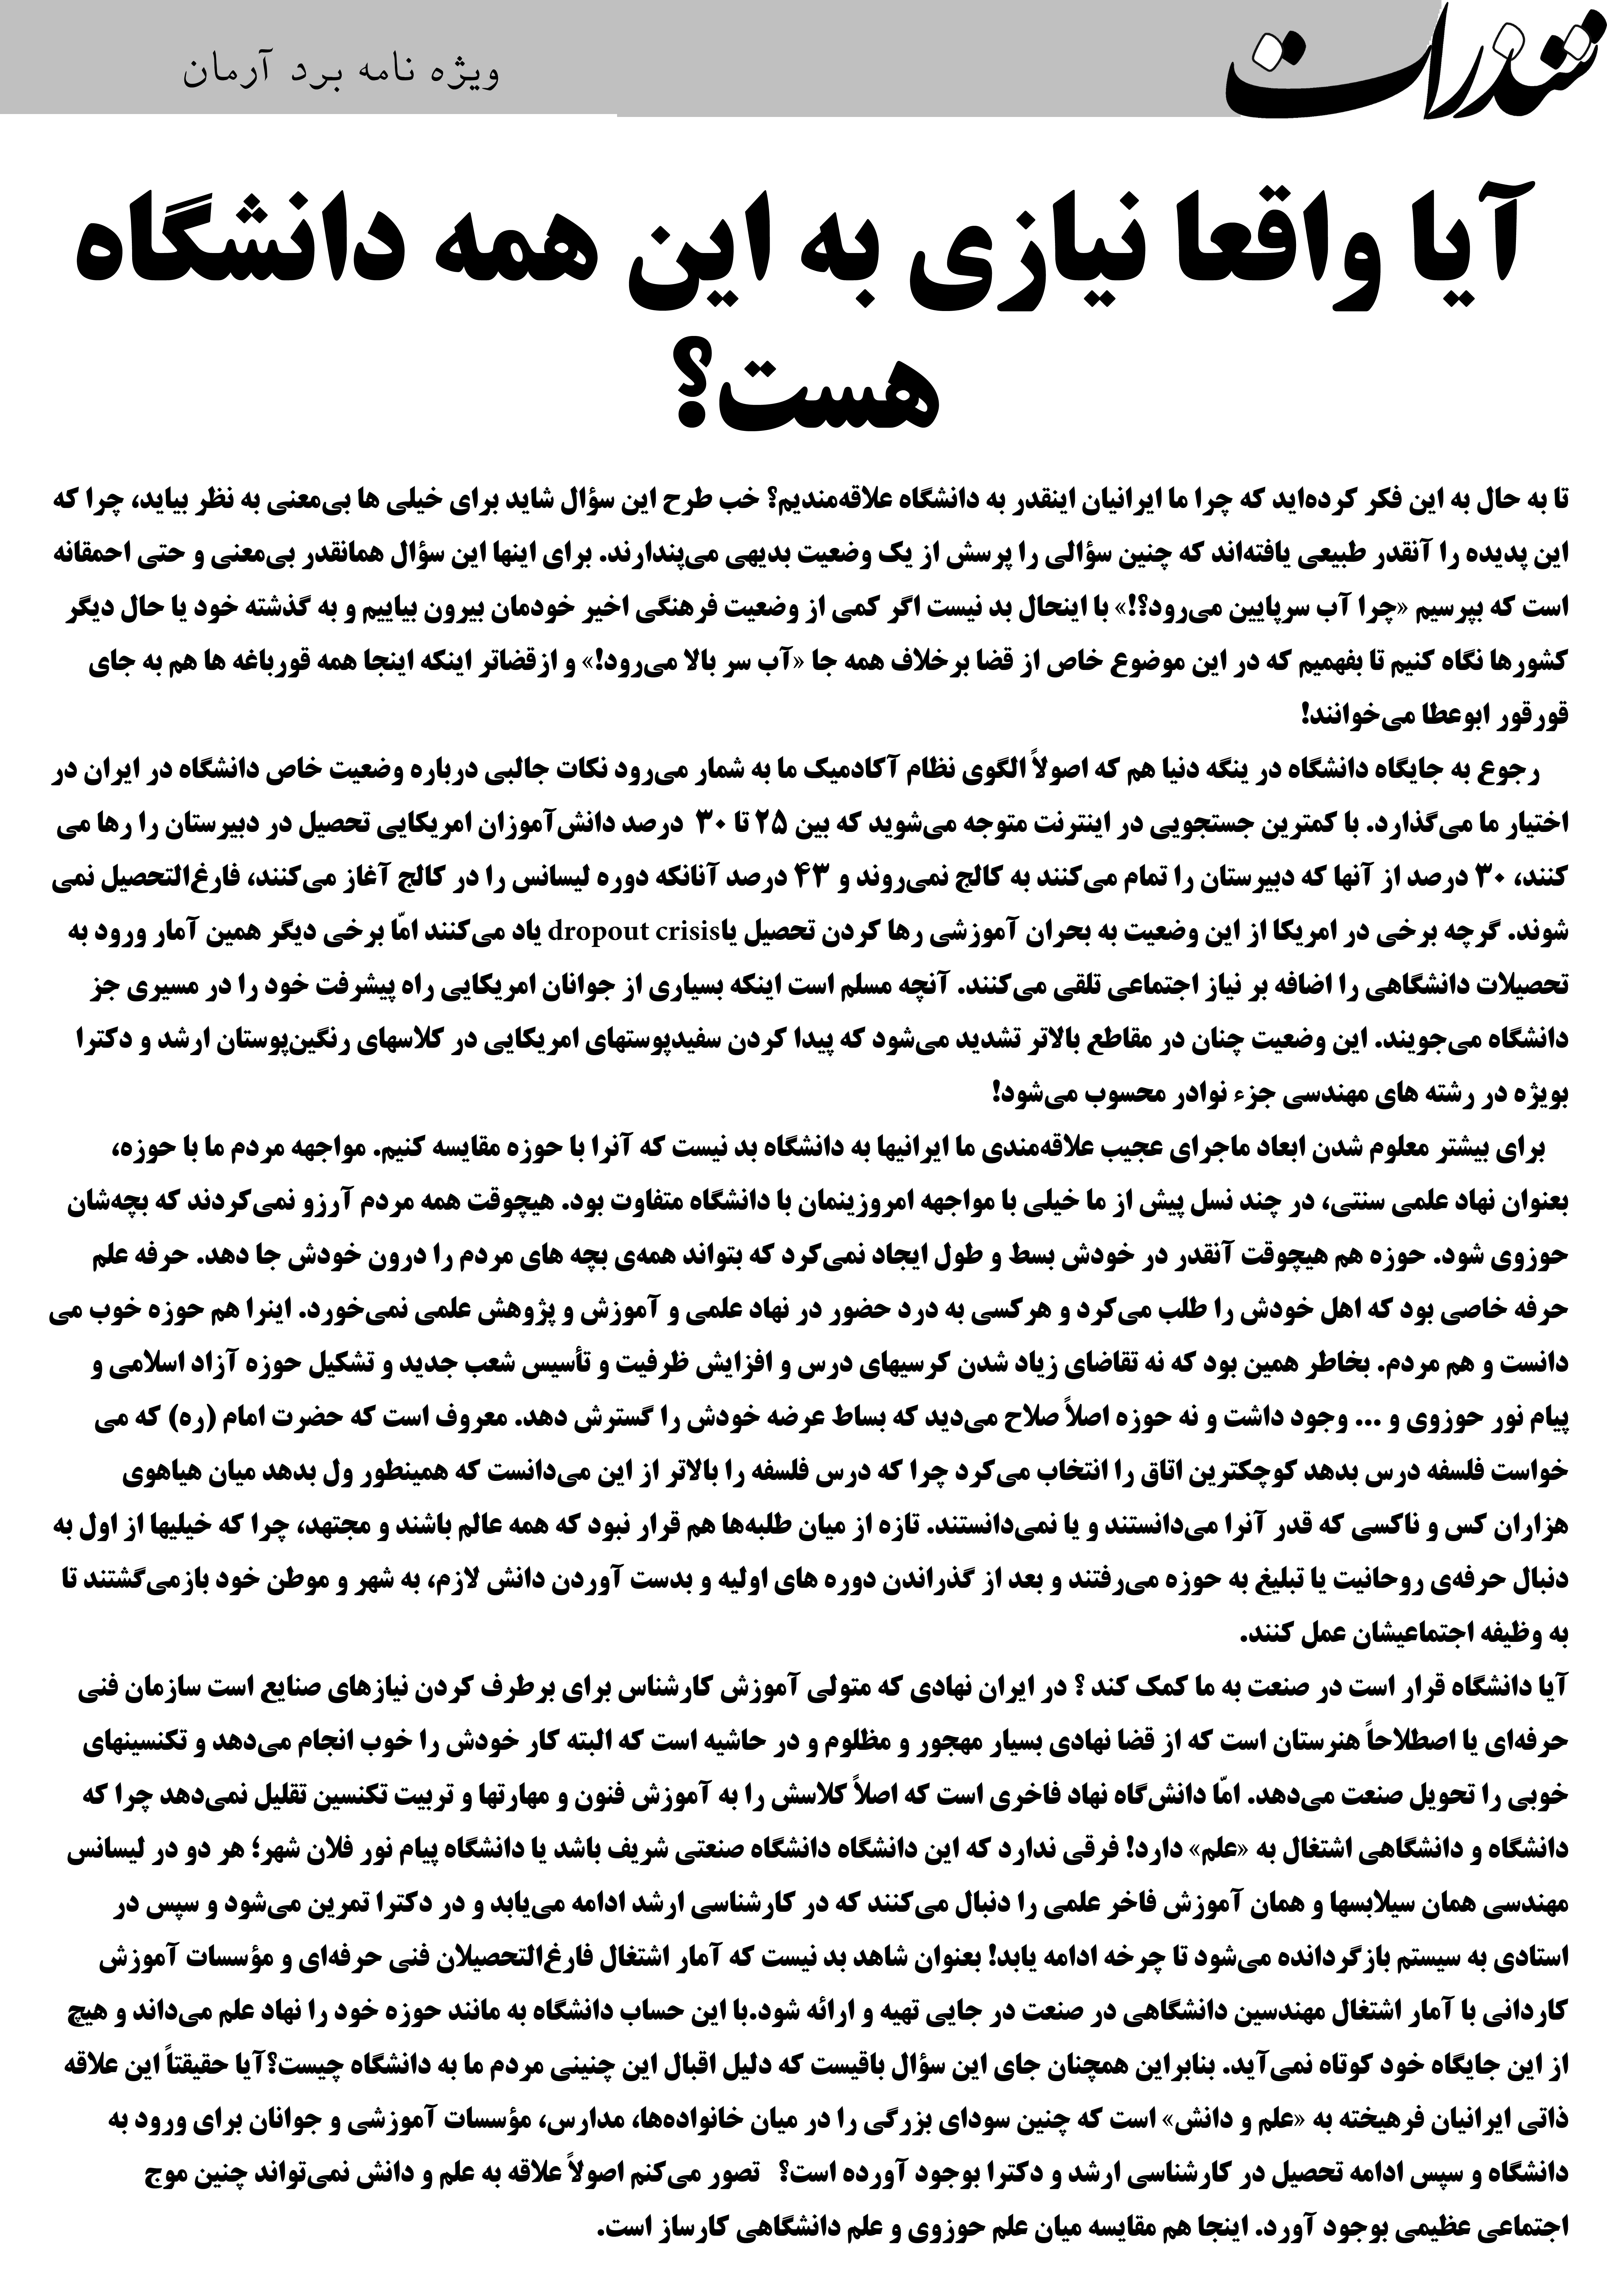 شذرات
ویژه نامه برد آرمان
آیا واقعا نیازی به این همه دانشگاه
هست؟
تا به حال به این فکر کرده‌اید که چرا ما ایرانیان اینقدر به دانشگاه علاقه‌مندیم؟ خب طرح این سؤال شاید برای خیلی ها بی‌معنی به نظر بیاید، چرا که
این پدیده را آنقدر طبیعی یافته‌اند که چنین سؤالی را پرسش از یک وضعیت بدیهی می‌پندارند. برای اینها این سؤال همانقدر بی‌معنی و حتی احمقانه
است که بپرسیم «چرا آب سرپایین می‌رود؟!» با اینحال بد نیست اگر کمی از وضعیت فرهنگی اخیر خودمان بیرون بیاییم و به گذشته خود یا حال دیگر
کشورها نگاه کنیم تا بفهمیم که در این موضوع خاص از قضا برخلاف همه جا «آب سر بالا می‌رود!» و ازقضاتر اینکه اینجا همه قورباغه ها هم به جای
قورقور ابوعطا می‌خوانند!
رجوع به جایگاه دانشگاه در ینگه دنیا هم که اصولاً الگوی نظام آکادمیک ما به شمار می‌رود نکات جالبی درباره وضعیت خاص دانشگاه در ایران در
اختیار ما می‌گذارد. با کمترین جستجویی در اینترنت متوجه می‌شوید که بین ۲۵ تا ۳۰ درصد دانش‌آموزان امریکایی تحصیل در دبیرستان را رها می
کنند، ۳۰ درصد از آنها که دبیرستان را تمام می‌کنند به کالج نمی‌روند و ۴۳ درصد آنانکه دوره لیسانس را در کالج آغاز می‌کنند، فارغ‌التحصیل نمی
شوند. گرچه برخی در امریکا از این وضعیت به بحران آموزشی رها کردن تحصیل یاdropout crisis یاد می‌کنند امّا برخی دیگر همین آمار ورود به
تحصیلات دانشگاهی را اضافه بر نیاز اجتماعی تلقی می‌کنند. آنچه مسلم است اینکه بسیاری از جوانان امریکایی راه پیشرفت خود را در مسیری جز
دانشگاه می‌جویند. این وضعیت چنان در مقاطع بالاتر تشدید می‌شود که پیدا کردن سفیدپوستهای امریکایی در کلاسهای رنگین‌پوستان ارشد و دکترا
بویژه در رشته های مهندسی جزء نوادر محسوب می‌شود!
برای بیشتر معلوم شدن ابعاد ماجرای عجیب علاقه‌مندی ما ایرانیها به دانشگاه بد نیست که آنرا با حوزه مقایسه کنیم. مواجهه مردم ما با حوزه،
بعنوان نهاد علمی سنتی، در چند نسل پیش از ما خیلی با مواجهه امروزینمان با دانشگاه متفاوت بود. هیچوقت همه مردم آرزو نمی‌کردند که بچه‌شان
حوزوی شود. حوزه هم هیچوقت آنقدر در خودش بسط و طول ایجاد نمی‌کرد که بتواند همه‌ی بچه های مردم را درون خودش جا دهد. حرفه علم
حرفه خاصی بود که اهل خودش را طلب می‌کرد و هرکسی به درد حضور در نهاد علمی و آموزش و پژوهش علمی نمی‌خورد. اینرا هم حوزه خوب می
دانست و هم مردم. بخاطر همین بود که نه تقاضای زیاد شدن کرسیهای درس و افزایش ظرفیت و تأسیس شعب جدید و تشکیل حوزه آزاد اسلامی و
پیام نور حوزوی و ... وجود داشت و نه حوزه اصلاً صلاح می‌دید که بساط عرضه خودش را گسترش دهد. معروف است که حضرت امام (ره) که می
خواست فلسفه درس بدهد کوچکترین اتاق را انتخاب می‌کرد چرا که درس فلسفه را بالاتر از این می‌دانست که همینطور ول بدهد میان هیاهوی
هزاران کس و ناکسی که قدر آنرا می‌دانستند و یا نمی‌دانستند. تازه از میان طلبه‌ها هم قرار نبود که همه عالم باشند و مجتهد، چرا که خیلیها از اول به
دنبال حرفه‌ی روحانیت یا تبلیغ به حوزه می‌رفتند و بعد از گذراندن دوره های اولیه و بدست آوردن دانش لازم، به شهر و موطن خود بازمی‌گشتند تا
به وظیفه اجتماعیشان عمل کنند.
آیا دانشگاه قرار است در صنعت به ما کمک کند ؟ در ایران نهادی که متولی آموزش کارشناس برای برطرف کردن نیازهای صنایع است سازمان فنی
حرفه‌ای یا اصطلاحاً هنرستان است که از قضا نهادی بسیار مهجور و مظلوم و در حاشیه است که البته کار خودش را خوب انجام می‌دهد و تکنسینهای
خوبی را تحویل صنعت می‌دهد. امّا دانش‌گاه نهاد فاخری است که اصلاً کلاسش را به آموزش فنون و مهارتها و تربیت تکنسین تقلیل نمی‌دهد چرا که
دانشگاه و دانشگاهی اشتغال به «علم» دارد! فرقی ندارد که این دانشگاه دانشگاه صنعتی شریف باشد یا دانشگاه پیام نور فلان شهر؛ هر دو در لیسانس
مهندسی همان سیلابسها و همان آموزش فاخر علمی را دنبال می‌کنند که در کارشناسی ارشد ادامه می‌یابد و در دکترا تمرین می‌شود و سپس در
استادی به سیستم بازگردانده می‌شود تا چرخه ادامه یابد! بعنوان شاهد بد نیست که آمار اشتغال فارغ‌التحصیلان فنی حرفه‌ای و مؤسسات آموزش
کاردانی با آمار اشتغال مهندسین دانشگاهی در صنعت در جایی تهیه و ارائه شود.با این حساب دانشگاه به مانند حوزه خود را نهاد علم می‌داند و هیچ
از این جایگاه خود کوتاه نمی‌آید. بنابراین همچنان جای این سؤال باقیست که دلیل اقبال این چنینی مردم ما به دانشگاه چیست؟آیا حقیقتاً این علاقه
ذاتی ایرانیان فرهیخته به «علم و دانش» است که چنین سودای بزرگی را در میان خانواده‌ها، مدارس، مؤسسات آموزشی و جوانان برای ورود به
دانشگاه و سپس ادامه تحصیل در کارشناسی ارشد و دکترا بوجود آورده است؟ تصور می‌کنم اصولاً علاقه به علم و دانش نمی‌تواند چنین موج
اجتماعی عظیمی بوجود آورد. اینجا هم مقایسه میان علم حوزوی و علم دانشگاهی کارساز است.